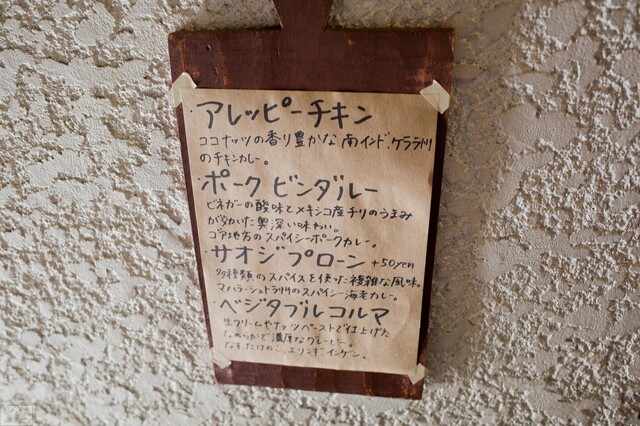 ・アレッピーチキン
ココナッツの香り豊かな南インド、ケララ州
のチキンカレー。
・ポークビンダルー
ビネガーの酸味とメキシコ産チリのうまみ
が効いた奥深い味わい。
ゴア地方のスパイシーポークカレー。
・サオジプローン +50yen
多種類のスパイスを使った複雑な風味。
マハラーシュトラ州のスパイシー海老カレー。
・ベジタブルコルマ
生クリームやナッツペーストで仕上げた
なめらかで濃厚なグレービー。
なす、たけのこ、エリンギ、インゲン。